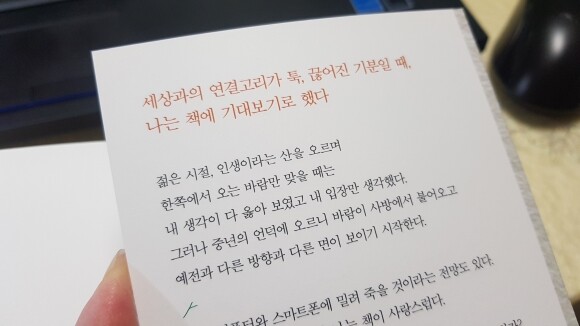 세상과의 연결고리가 툭, 끊어진 기분일 때,
나는 책에 기대보기로 했다
젊은 시절, 인생이라는 산을 오르며
한쪽에서 오는 바람만 맞을 때는
내 생각이 다 옳아 보였고 내 입장만 생각했다.
그러나 중년의 언덕에 오르니 바람이 사방에서 불어오고
예전과 다른 방향과 다른 면이 보이기 시작한다.
스마트폰에 밀려 죽을 것이라는 전망도 있다.
책이 사랑스럽다.